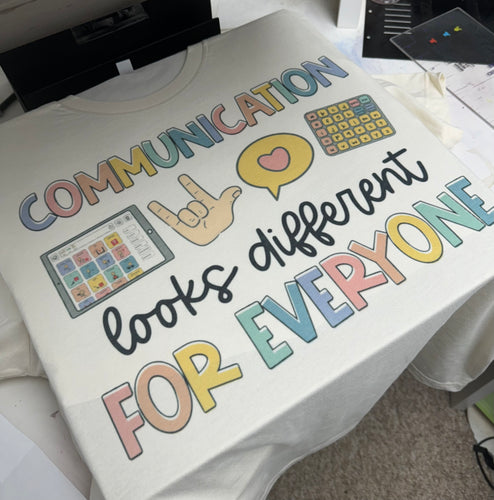 COMMUNICATION
looks different
FOR EVERYONE